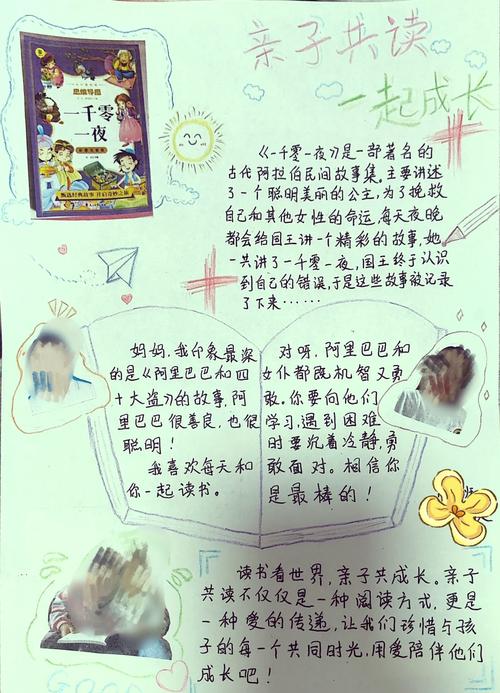 亲子共读
一起成长
思维导图
一千零
一夜
《一千零一夜》是一部著名的
古代阿拉伯民间故事集，主要讲述
了一个聪明美丽的公主，为了挽救
自己和其他女性的命运，每天夜晚
都会给国王讲一个精彩的故事，她
一共讲了一千零一夜，国王终于认识
到自己的错误，于是这些故事被记录
了下来……
妈妈，我印象最深
的是《阿里巴巴和四
十大盗》的故事，阿
里巴巴很善良，也很
聪明！
我喜欢每天和
你一起读书。
对呀，阿里巴巴和
女仆都既机智又勇
敢。你要向他们
学习，遇到困难
时要沉着冷静，勇
敢面对。相信你
是最棒的！
读书看世界，亲子共成长。亲子
共读不仅仅是一种阅读方式，更是
一种爱的传递，让我们珍惜与孩
子的每一个共同时光，用爱陪伴他们
成长吧！